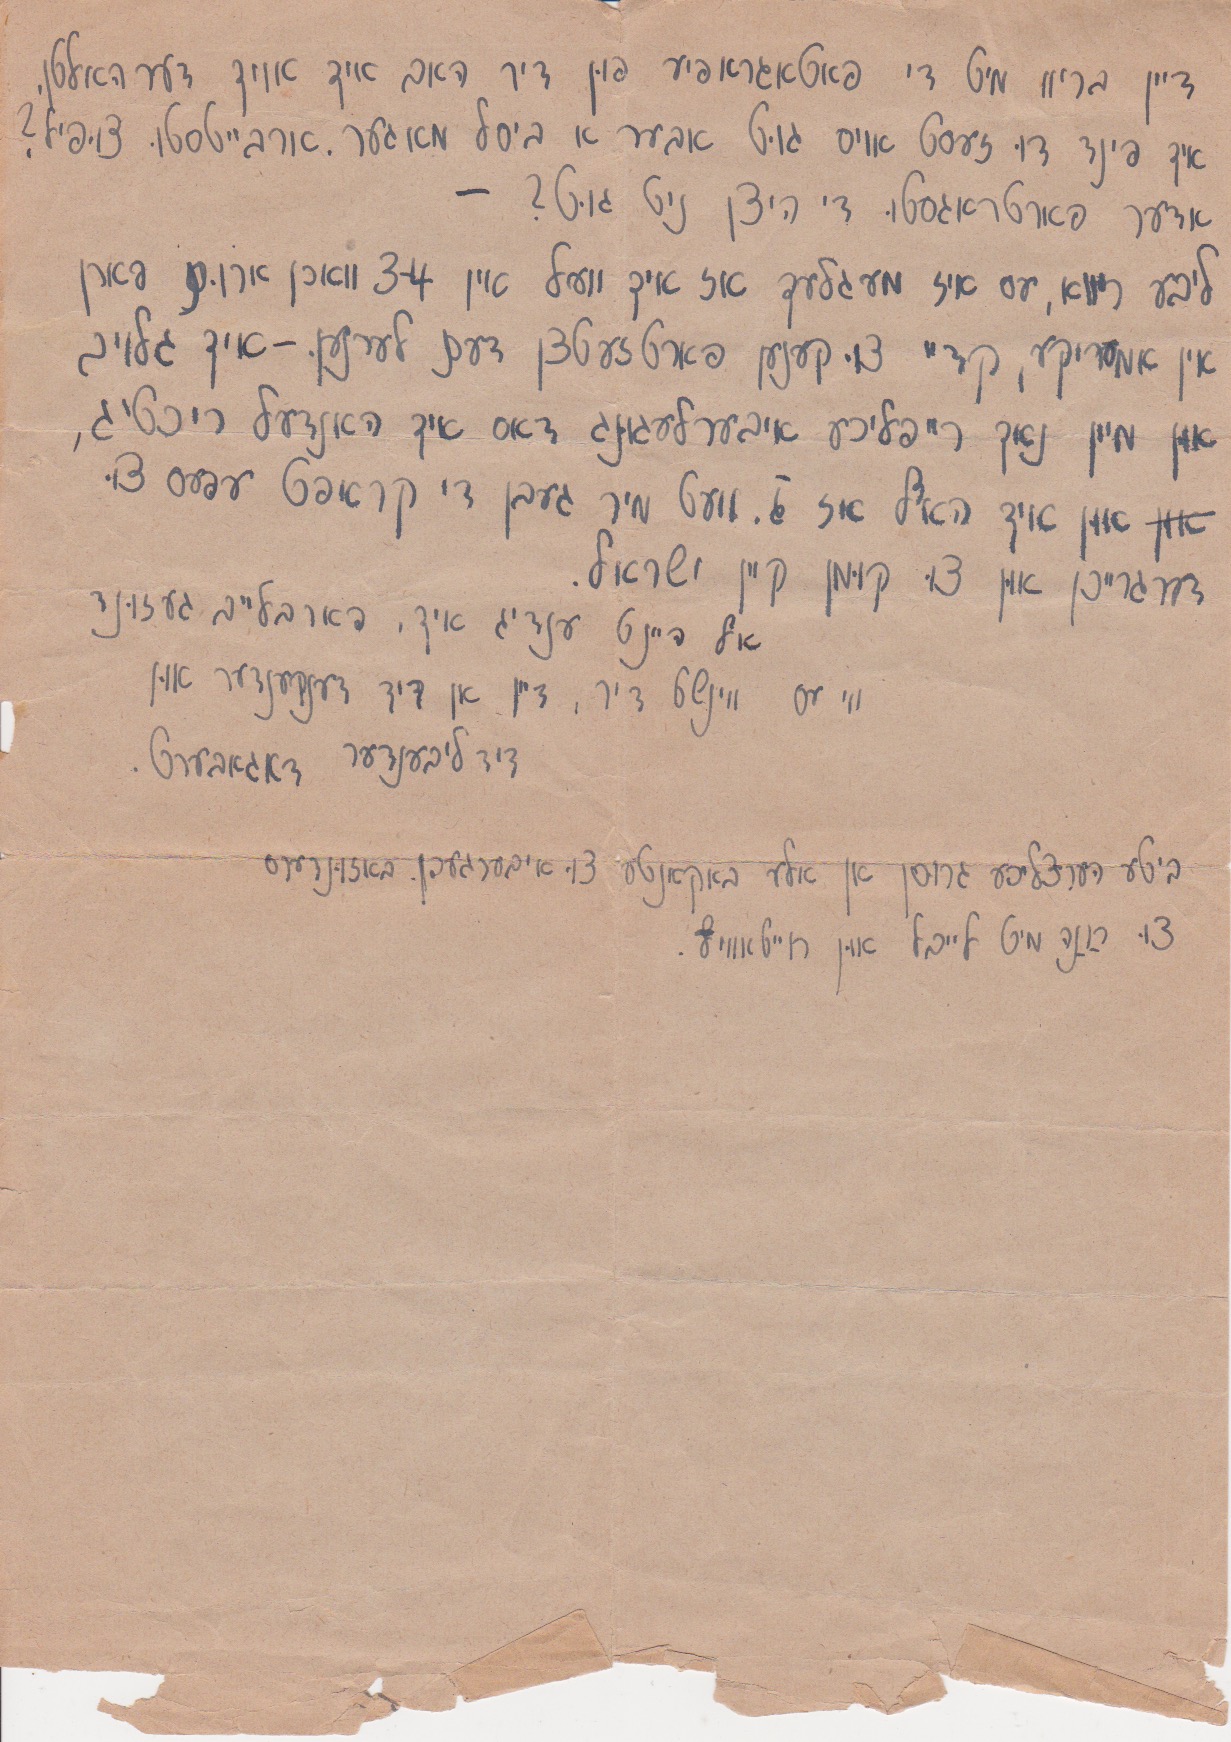 דיין בריוו מיט די פאטאגראפיע פון דיר האב איך אויך דערהאילטן.
איך פינד דו זעסט אויס גוט אבער א ביסל מאגער. ארבייטסטו צופיל?
אדער פארטראגסטו די היצן ניט גוט? –
ליבע ריווא, עס איז מעגלעך אז איך וועל אין 3-4 וואכן ארום פארן
אין אמעריקע, קדיי צו קענען פארטזעטצן דעם לערנען. – איך גלויב
און מיין נאך רייפליכע איבערלעגונג דאס איך האנדעל ריכטיג,
און אויך האף אז ג. וועט מיר געבן די קראפט עפעס צו
דערגרייכן און צו קומען קיין ישראל.
אלץ היינט ענדיג איך, פארבלייב געזונד
ווי עס ווינשט דיר, דיין אן דיך דענקענדער און
דיך ליבענדער דאגאבערט.
ביטע הערצליכע גרוסן אן אלע באקאנטע צו איבערגעבן. באזונדערס
צו חנה מיט לייבל און